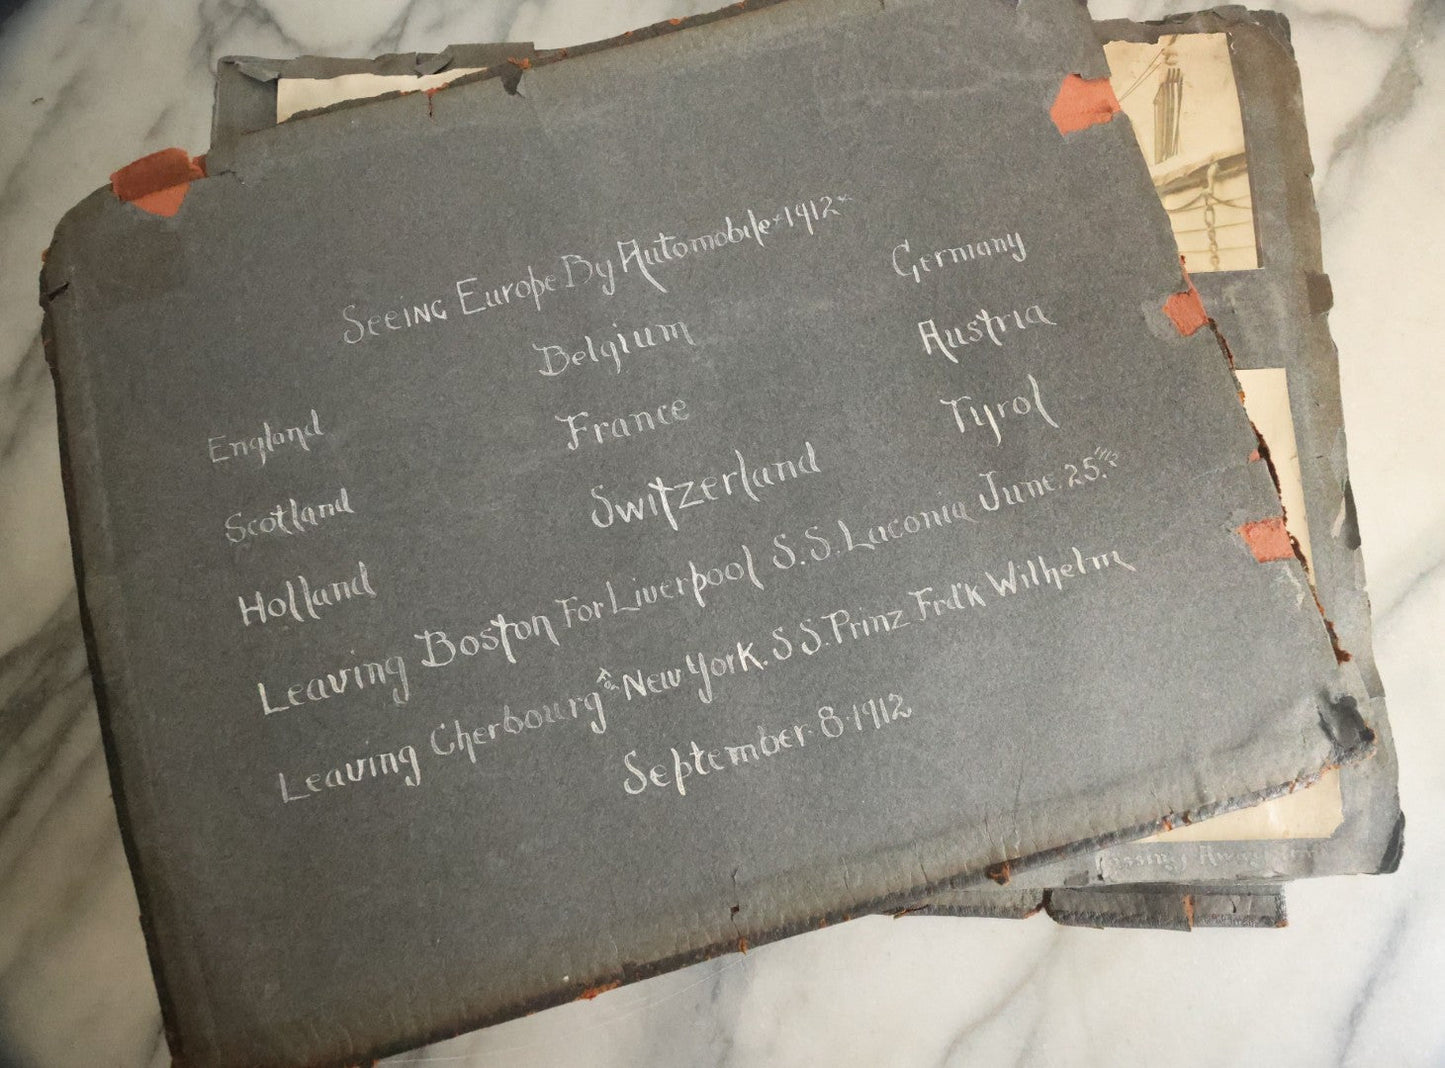 Seeing Europe By Automobile "1912"
England
Scotland
Holland
Belgium
France
Switzerland
Germany
Austria
Tyrol
Leaving Boston For Liverpool S.S. Laconia June. 25. 1912
Leaving Cherbourg For New York. S S. Prinz Frd'k Wilhelm
September. 8. 1912